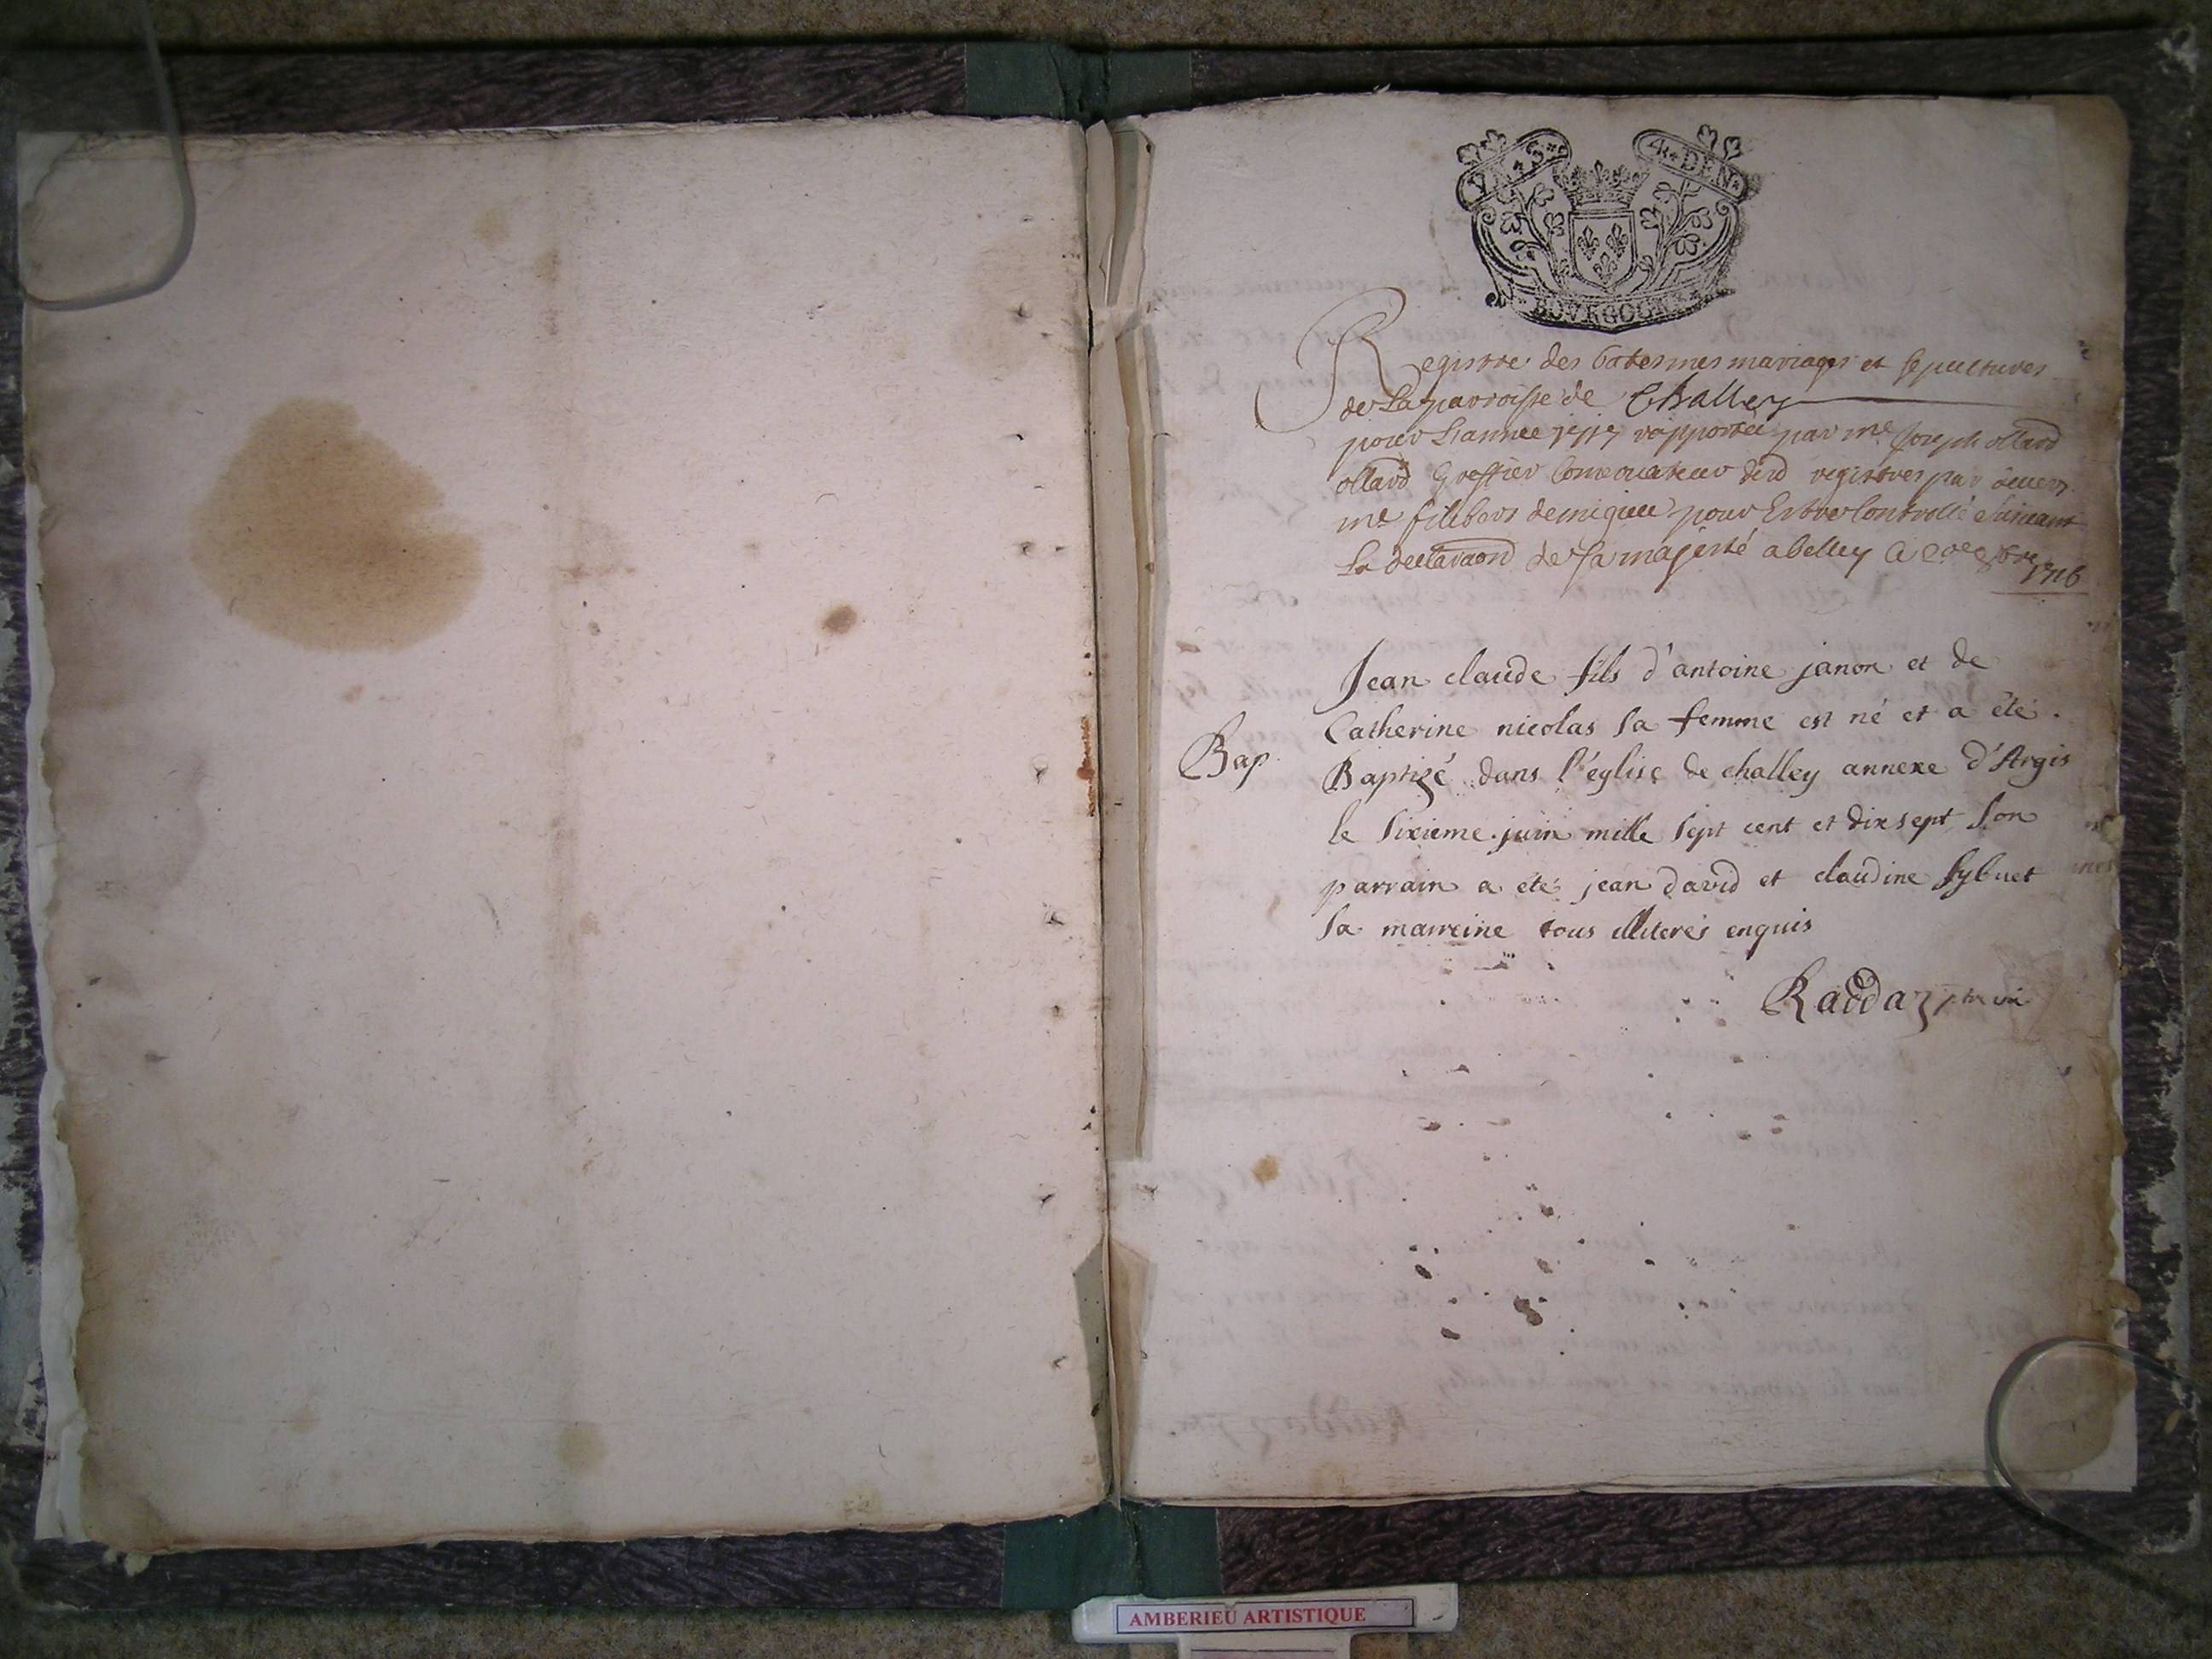 VN · S · 4 · DEN ·
BOVRGOGNE
Registre des batesmes mariages et sepultures
de La parroisse de Challey
pour L'annee 1717 rapportée par me Joseph ollard
ollard Greffier Conservateur registres par
me pour Estre Controllé Suivant
La declaraon de sa majesté a belley
1716
Jean claude fils d'antoine janon et de
Catherine nicolas sa femme est né et a été.
Bap.
Baptizé dans l'eglise de challey annexe d'Argis
le sixieme juin mille sept cent et dix sept son
parrain a été jean david et claudine sybuet
sa marreine tous illiterés enquis
AMBERIEU ARTISTIQUE